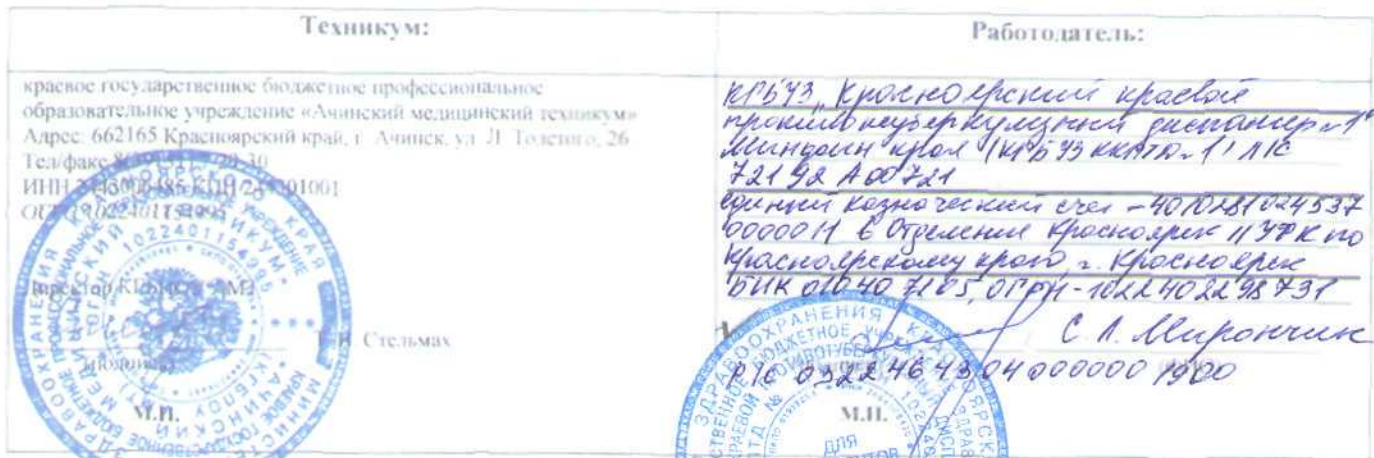 Техникум:
краевое государственное бюджетное профессиональное
образовательное учреждение «Ачинский медицинский техникум»
Адрес: 662165 Красноярский край, г. Ачинск, ул. Л. Толстого, 26
Тел/факс
ИНН КПП
ОГРН 1022401154995
Директор
Стельмах
М.П.
Работодатель:
КГБУЗ „Красноярский краевой
противотуберкулезный диспансер №1"
края (КГБУЗ ККПТД №1) Л/С
72192А00721
единый казначейский счет - 4010281024537
0000011 в Отделение Красноярск // УФК по
Красноярскому краю, г. Красноярск
БИК 010407105, ОГРН - 1022402298731
С.Л. Мирончик
Р/С 0322464304000000 1900
М.П.
ДЛЯ